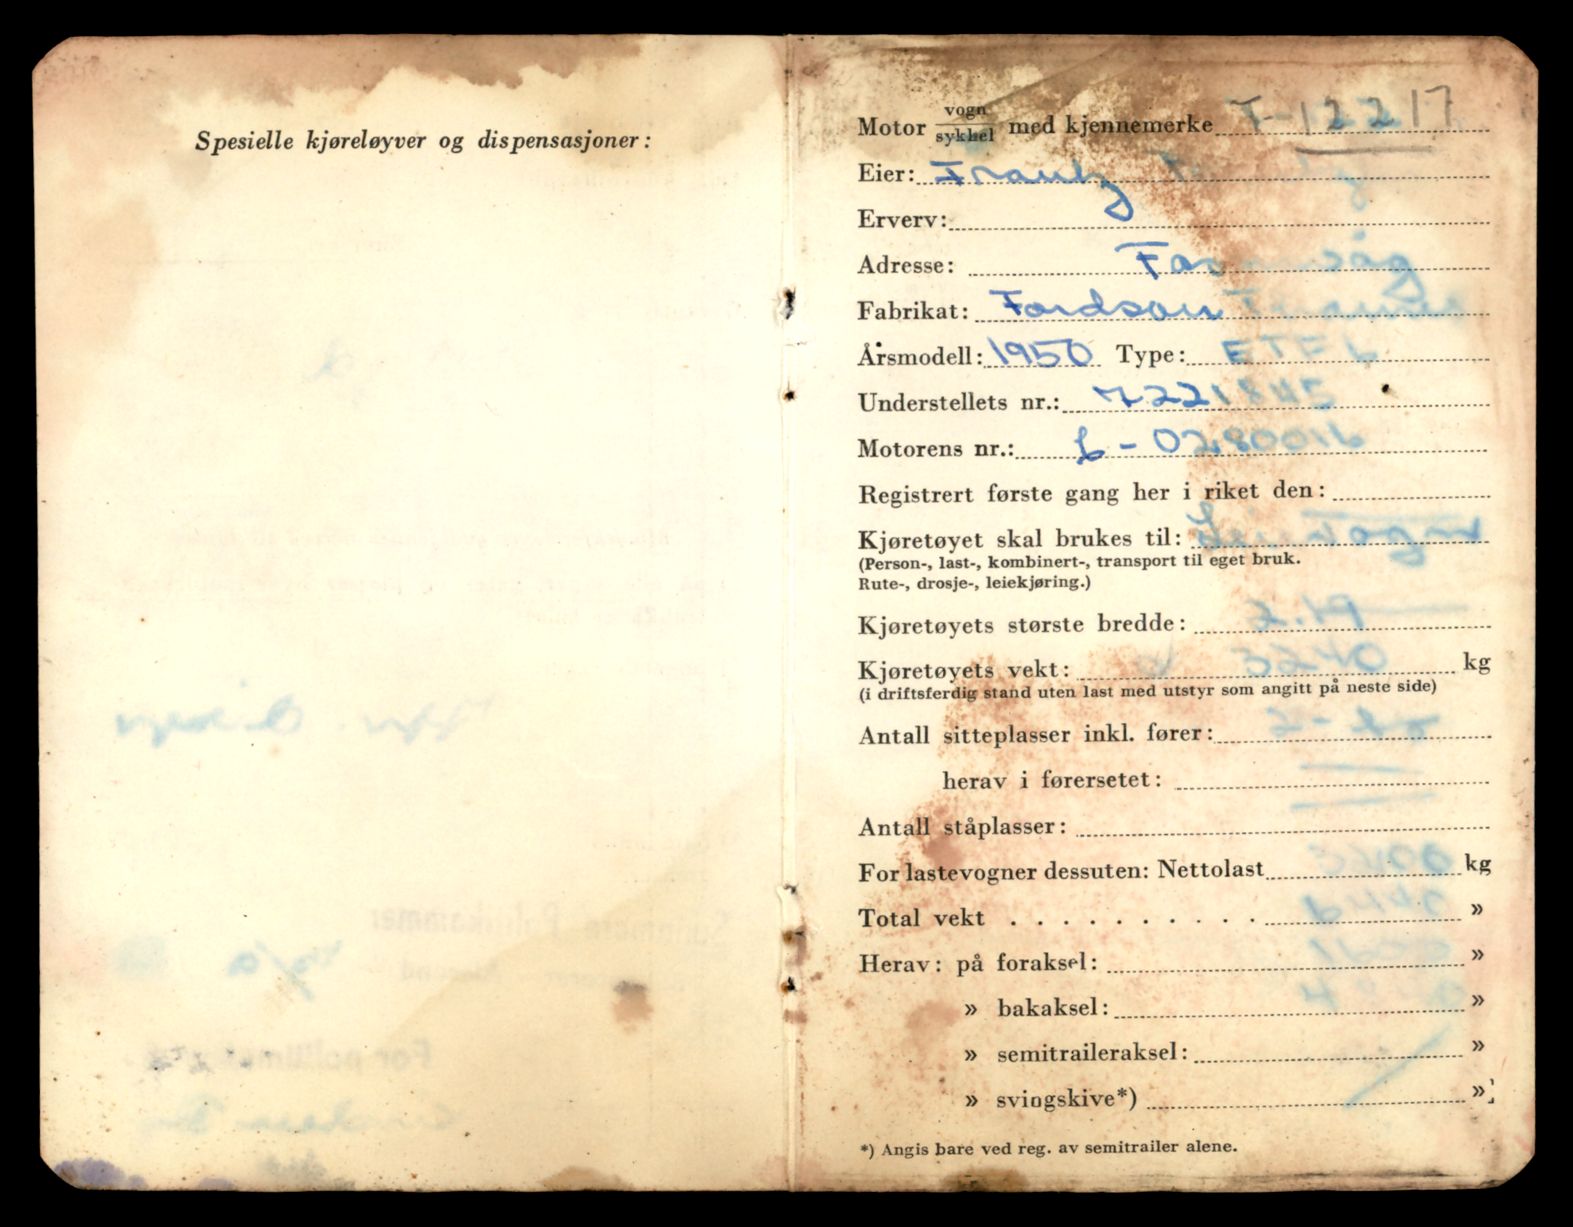 Spesielle kjøreløyver og dispensasjoner:
Motor vogn/sykkel med kjennemerke T-12217
Eier: Frantz
Erverv:
Adresse:
Fabrikat: Fordson Thames
Årsmodell: 1950 Type: ETF6
Understellets nr.: 7221845
Motorens nr.: 6-0280016
Registrert første gang her i riket den:
Kjøretøyet skal brukes til: Leievogn
(Person-, last-, kombinert-, transport til eget bruk.
Rute-, drosje-, leiekjøring.)
Kjøretøyets største bredde: 2.19
Kjøretøyets vekt: kg
(i driftsferdig stand uten last med utstyr som angitt på neste side)
Antall sitteplasser inkl. fører: 2-to
herav i førersetet:
Antall ståplasser:
For lastevogner dessuten: Nettolast kg
Total vekt . . . . . . . . . . »
Herav: på foraksel: »
» bakaksel: »
» semitraileraksel: »
» svingskive*) »
*) Angis bare ved reg. av semitrailer alene.